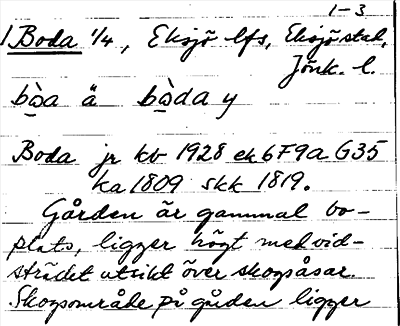 1-3
1 Boda 1/4, Eksjö lfs, Eksjö stad,
Jönk. l.
bòa ä bòda y
Boda jr kb 1928 ek 6F9a G35
ka 1809 skk 1819.
Gården är gammal bo-
plats, ligger högt med vid-
sträckt utsikt över skogsåsar.
Skogsområde på gården ligger